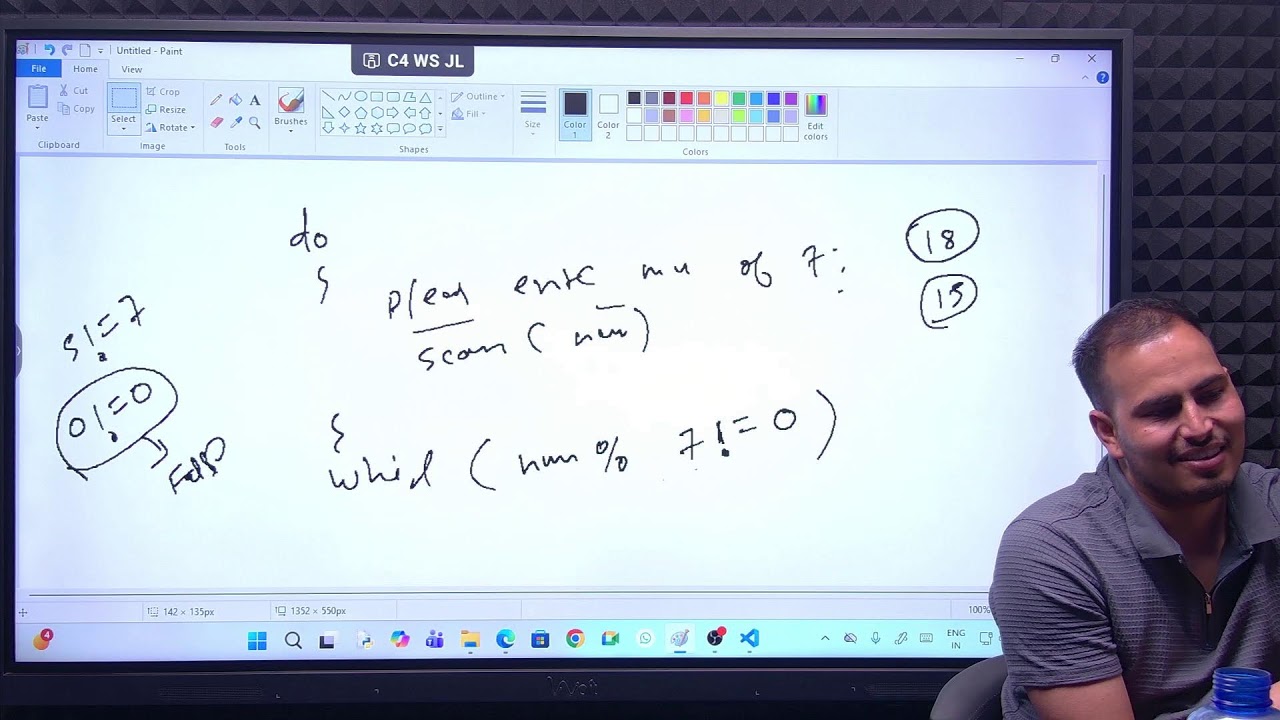 Untitled - Paint
C4 WS JL
File Home View
Paste
Cut
Copy
Clipboard
Select
Crop
Resize
Rotate
Image
Tools
Brushes
Shapes
Outline
Fill
Size
Color 1
Color 2
Edit colors
Colors
do
enter
of 7:
scan ( num )
( num % 7 != 0 )
18
15
5 != 7
0 != 0
142 × 135px
1352 × 550px
100%
4
ENG
IN